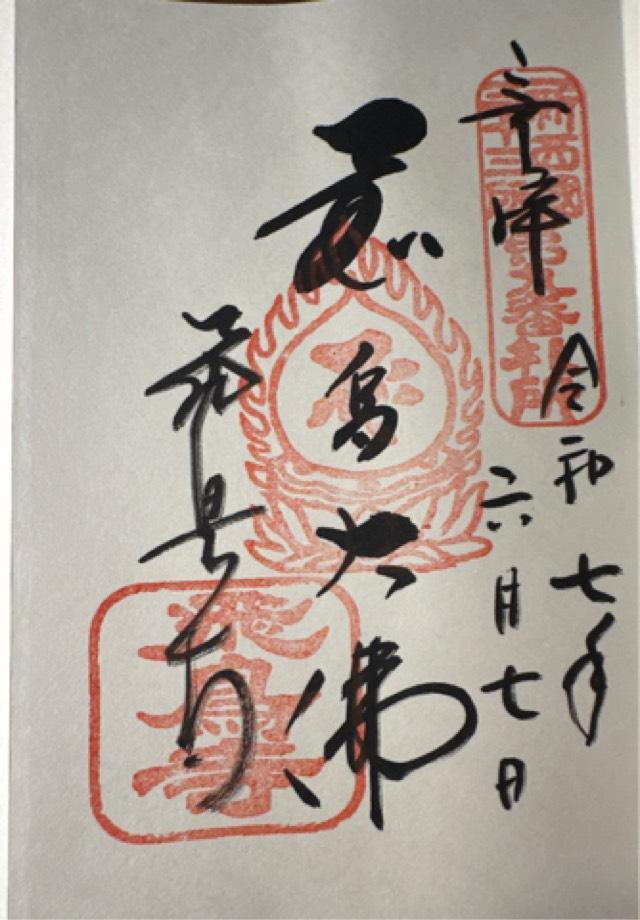 奉拝
令和七年
六月七日
飛鳥大佛
飛鳥寺
第九番札所
飛鳥寺